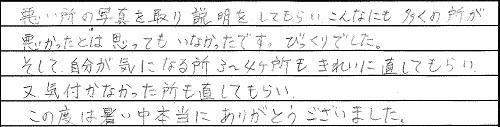 悪い所の写真を取り説明をしてもらいこんなにも多くの所が
悪かったとは思ってもいなかったです。びっくりでした。
そして、自分が気になる所3〜4ヶ所もきれいに直してもらい
又、気付かなかった所も直してもらい、
この度は暑い中本当にありがとうございました。